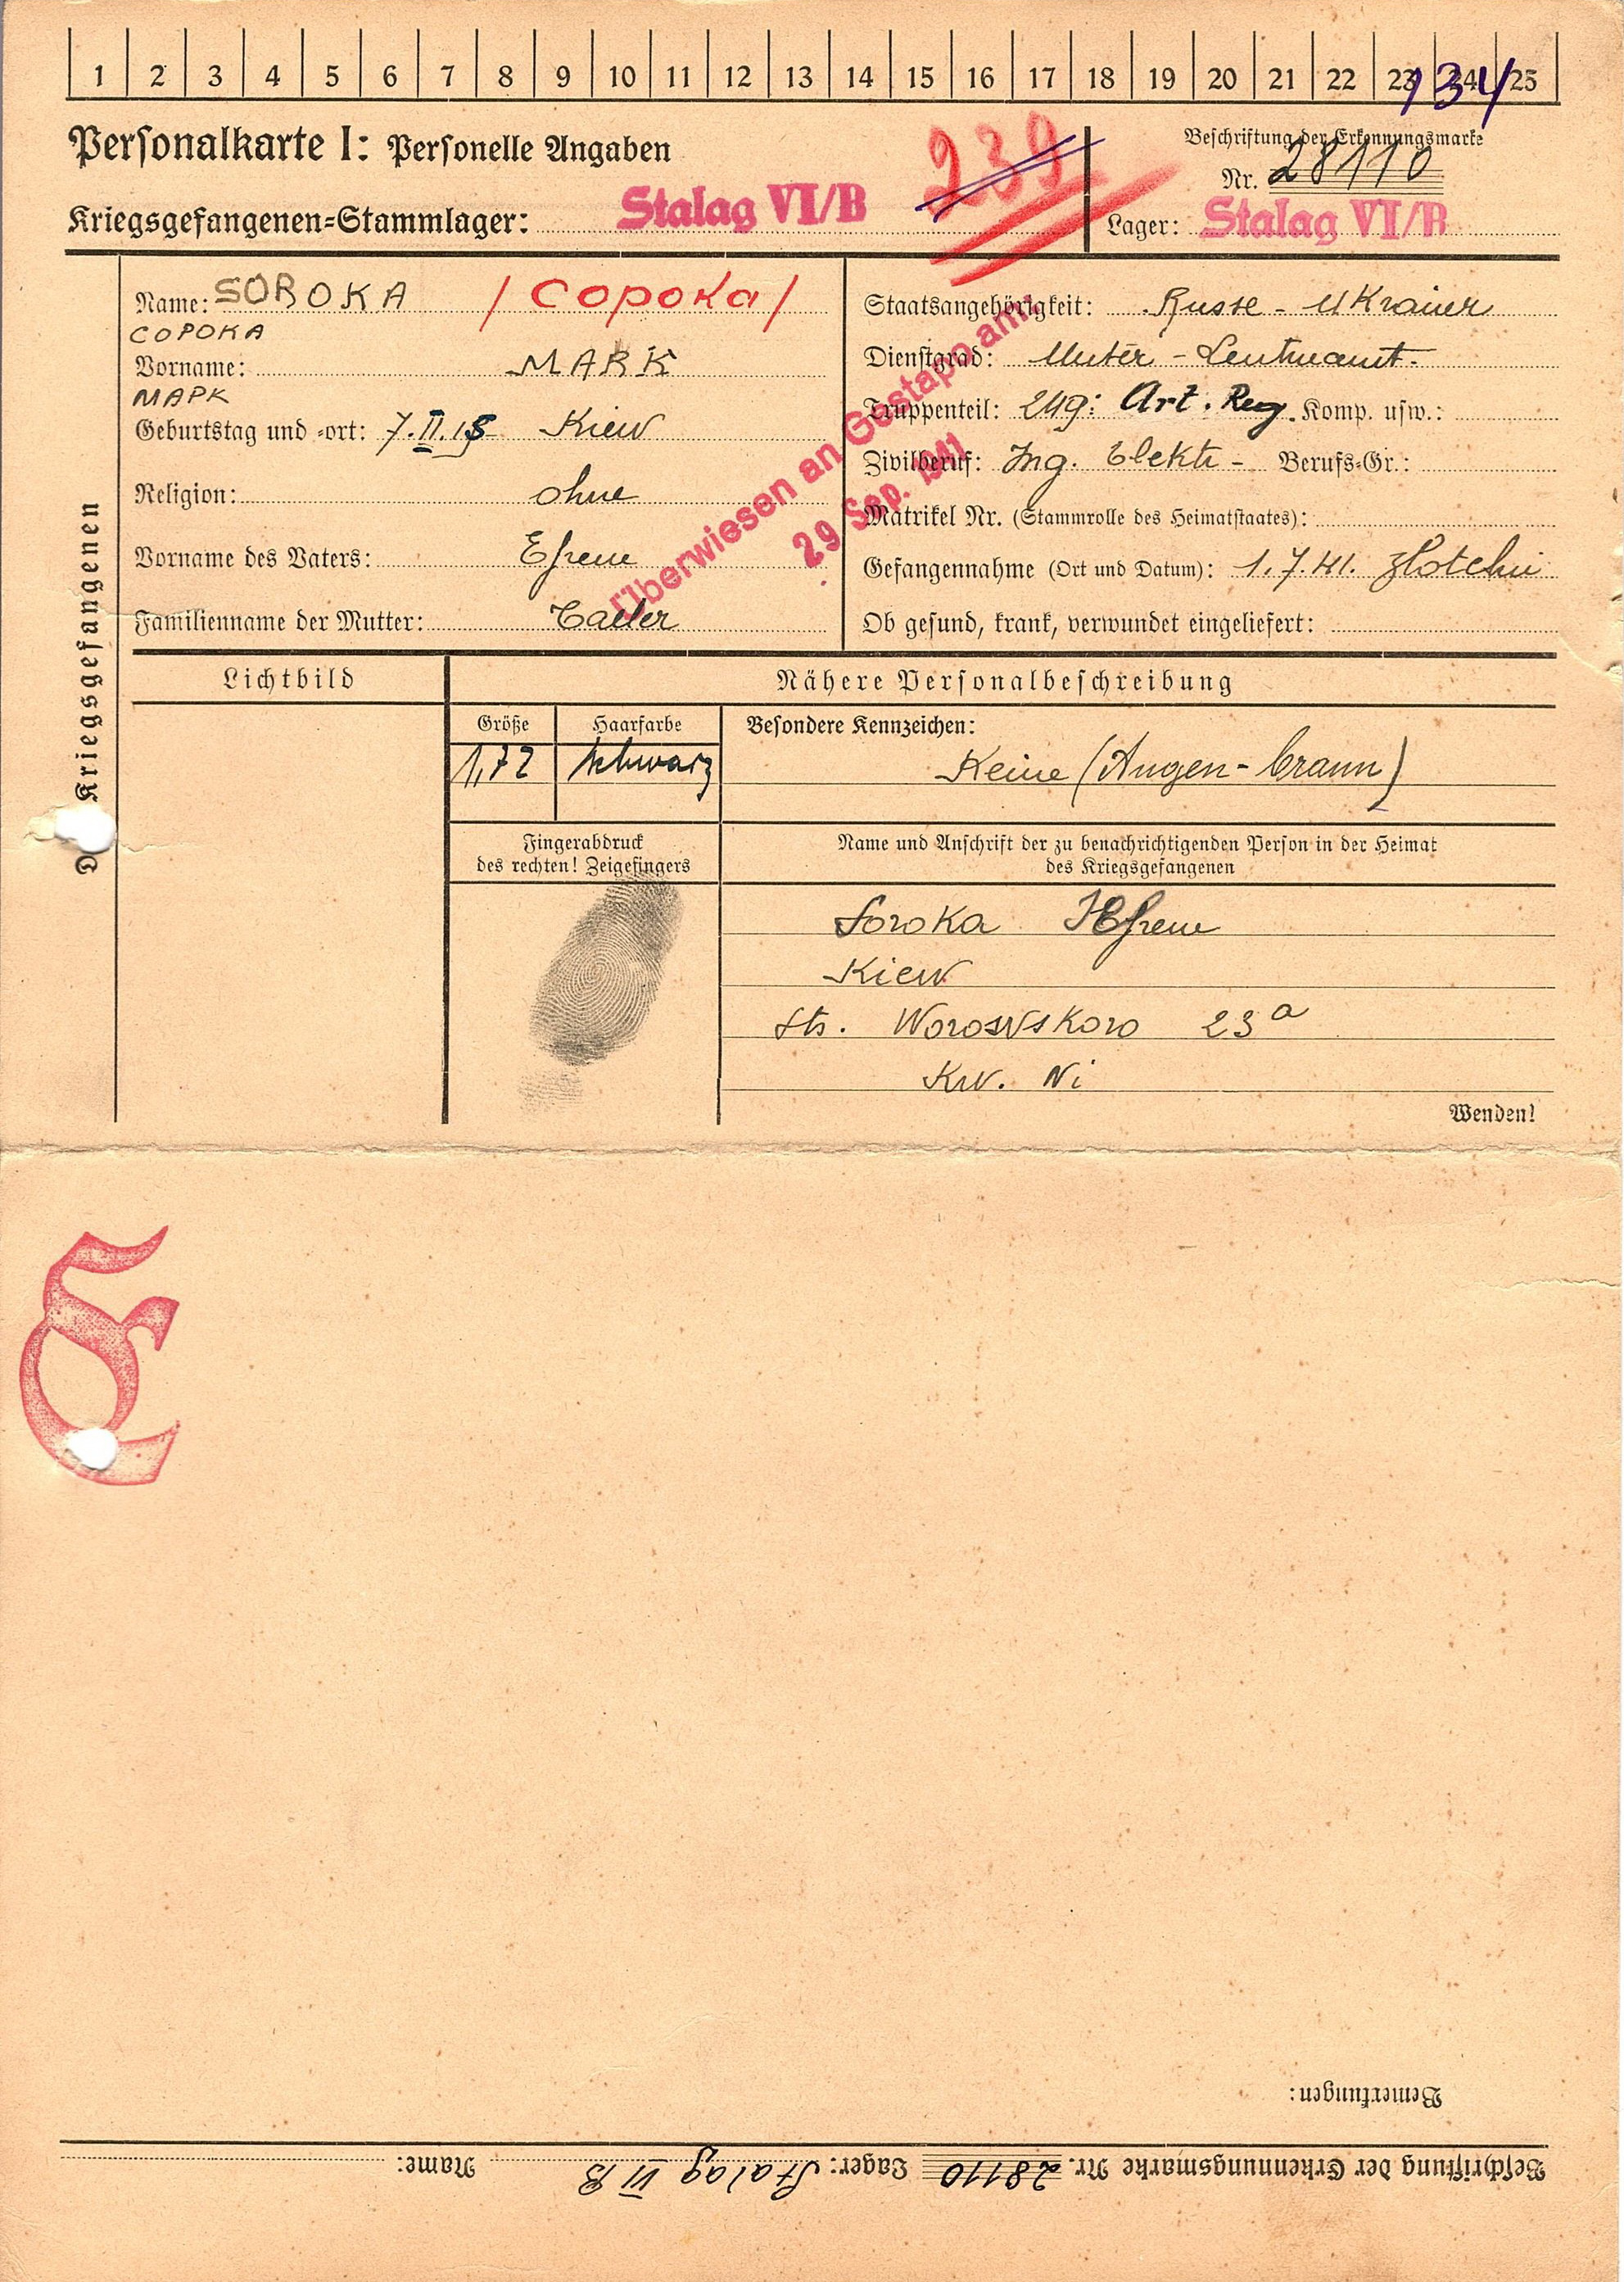 1 2 3 4 5 6 7 8 9 10 11 12 13 14 15 16 17 18 19 20 21 22 23 24 25
134
Personalkarte I: Personelle Angaben
239
Beschriftung der Erkennungsmarke
Nr. 28110
Kriegsgefangenen-Stammlager: Stalag VI/B
Lager: Stalag VI/B
Kriegsgefangenen
Name: SOROKA /Сорока/
СОРОКА
Vorname: MARK
МАРК
Geburtstag und -ort: 7.II.18 Kiew
Religion: ohne
Vorname des Vaters: Efrem
Familienname der Mutter:
Staatsangehörigkeit: Russe - Ukrainer
Dienstgrad: Unter - Leutnant.
Truppenteil: 249: Art. Reg. Komp. usw.:
Zivilberuf: Ing. Elektr - Berufs-Gr.:
Matrikel Nr. (Stammrolle des Heimatstaates):
Gefangennahme (Ort und Datum): 1.7.41.
Ob gesund, krank, verwundet eingeliefert:
Überwiesen an Gestapo am:
29 Sep. 1941
Lichtbild
Nähere Personalbeschreibung
Größe
Haarfarbe
Besondere Kennzeichen:
1,72
schwarz
Keine (Augen - braun)
Fingerabdruck
des rechten! Zeigefingers
Name und Anschrift der zu benachrichtigenden Person in der Heimat
des Kriegsgefangenen
Soroka Efrem
Kiew
Str. 23a
Kw.
Wenden!
E
Bemerkungen:
Beschriftung der Erkennungsmarke Nr. 28110 Lager: Stalag VI B Name: